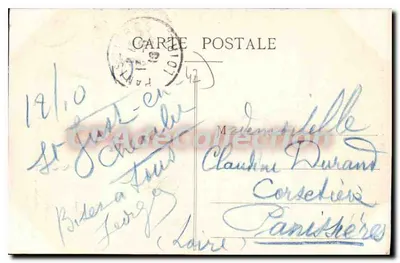 CARTE POSTALE
(42)
18/10
St Just-en
Chevalet
Bises à
Tous
Mademoiselle
Claudine Durand
Corsetière
Panissières
(Loire)